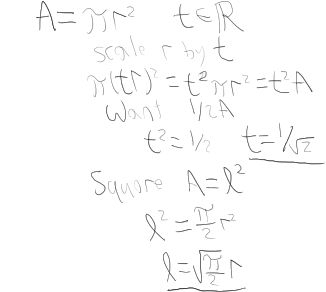 A = πr² t ∈ ℝ
scale r by t
π(tr)² = t²πr² = t²A
Want 1/2A
t² = 1/2 t = 1/√2
Square A = l²
l² = π/2 r²
l = √π/2 r